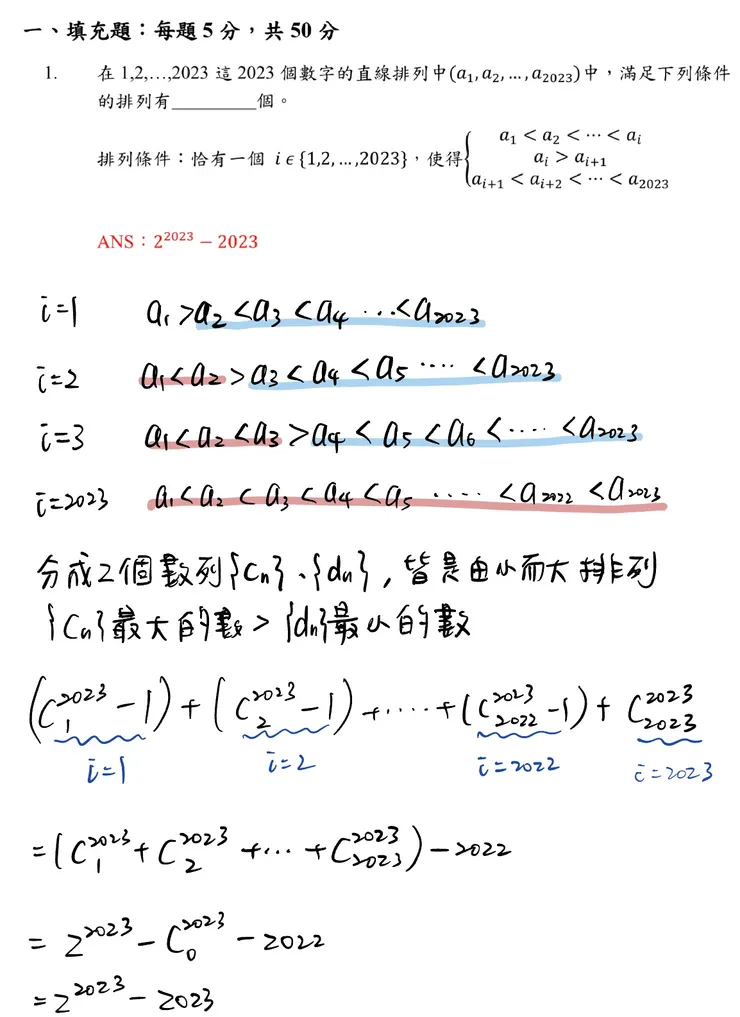 一、填充題：每題 5 分，共 50 分
1. 在 1,2,…,2023 這 2023 個數字的直線排列中(a₁, a₂, … , a₂₀₂₃)中，滿足下列條件
的排列有_________個。
a₁ < a₂ < ⋯ < aᵢ
排列條件：恰有一個 i ϵ {1,2, … ,2023}，使得{ aᵢ > aᵢ₊₁
aᵢ₊₁ < aᵢ₊₂ < ⋯ < a₂₀₂₃
ANS：2²⁰²³ − 2023
i=1 a₁ > a₂ < a₃ < a₄ ⋯ < a₂₀₂₃
i=2 a₁ < a₂ > a₃ < a₄ < a₅ ⋯⋅ < a₂₀₂₃
i=3 a₁ < a₂ < a₃ > a₄ < a₅ < a₆ < ⋯⋅ < a₂₀₂₃
i=2023 a₁ < a₂ < a₃ < a₄ < a₅ ⋯⋅⋅ < a₂₀₂₂ < a₂₀₂₃
分成2個數列{Cn}、{dn}，皆是由小而大排列
{Cn}最大的數 > {dn}最小的數
(C₁²⁰²³ − 1) + (C₂²⁰²³ − 1) + ⋯⋅⋅ + (C₂₀₂₂²⁰²³ − 1) + C₂₀₂₃²⁰²³
i=1 i=2 i=2022 i=2023
= (C₁²⁰²³ + C₂²⁰²³ + ⋯ + C₂₀₂₃²⁰²³) − 2022
= 2²⁰²³ − C₀²⁰²³ − 2022
= 2²⁰²³ − 2023